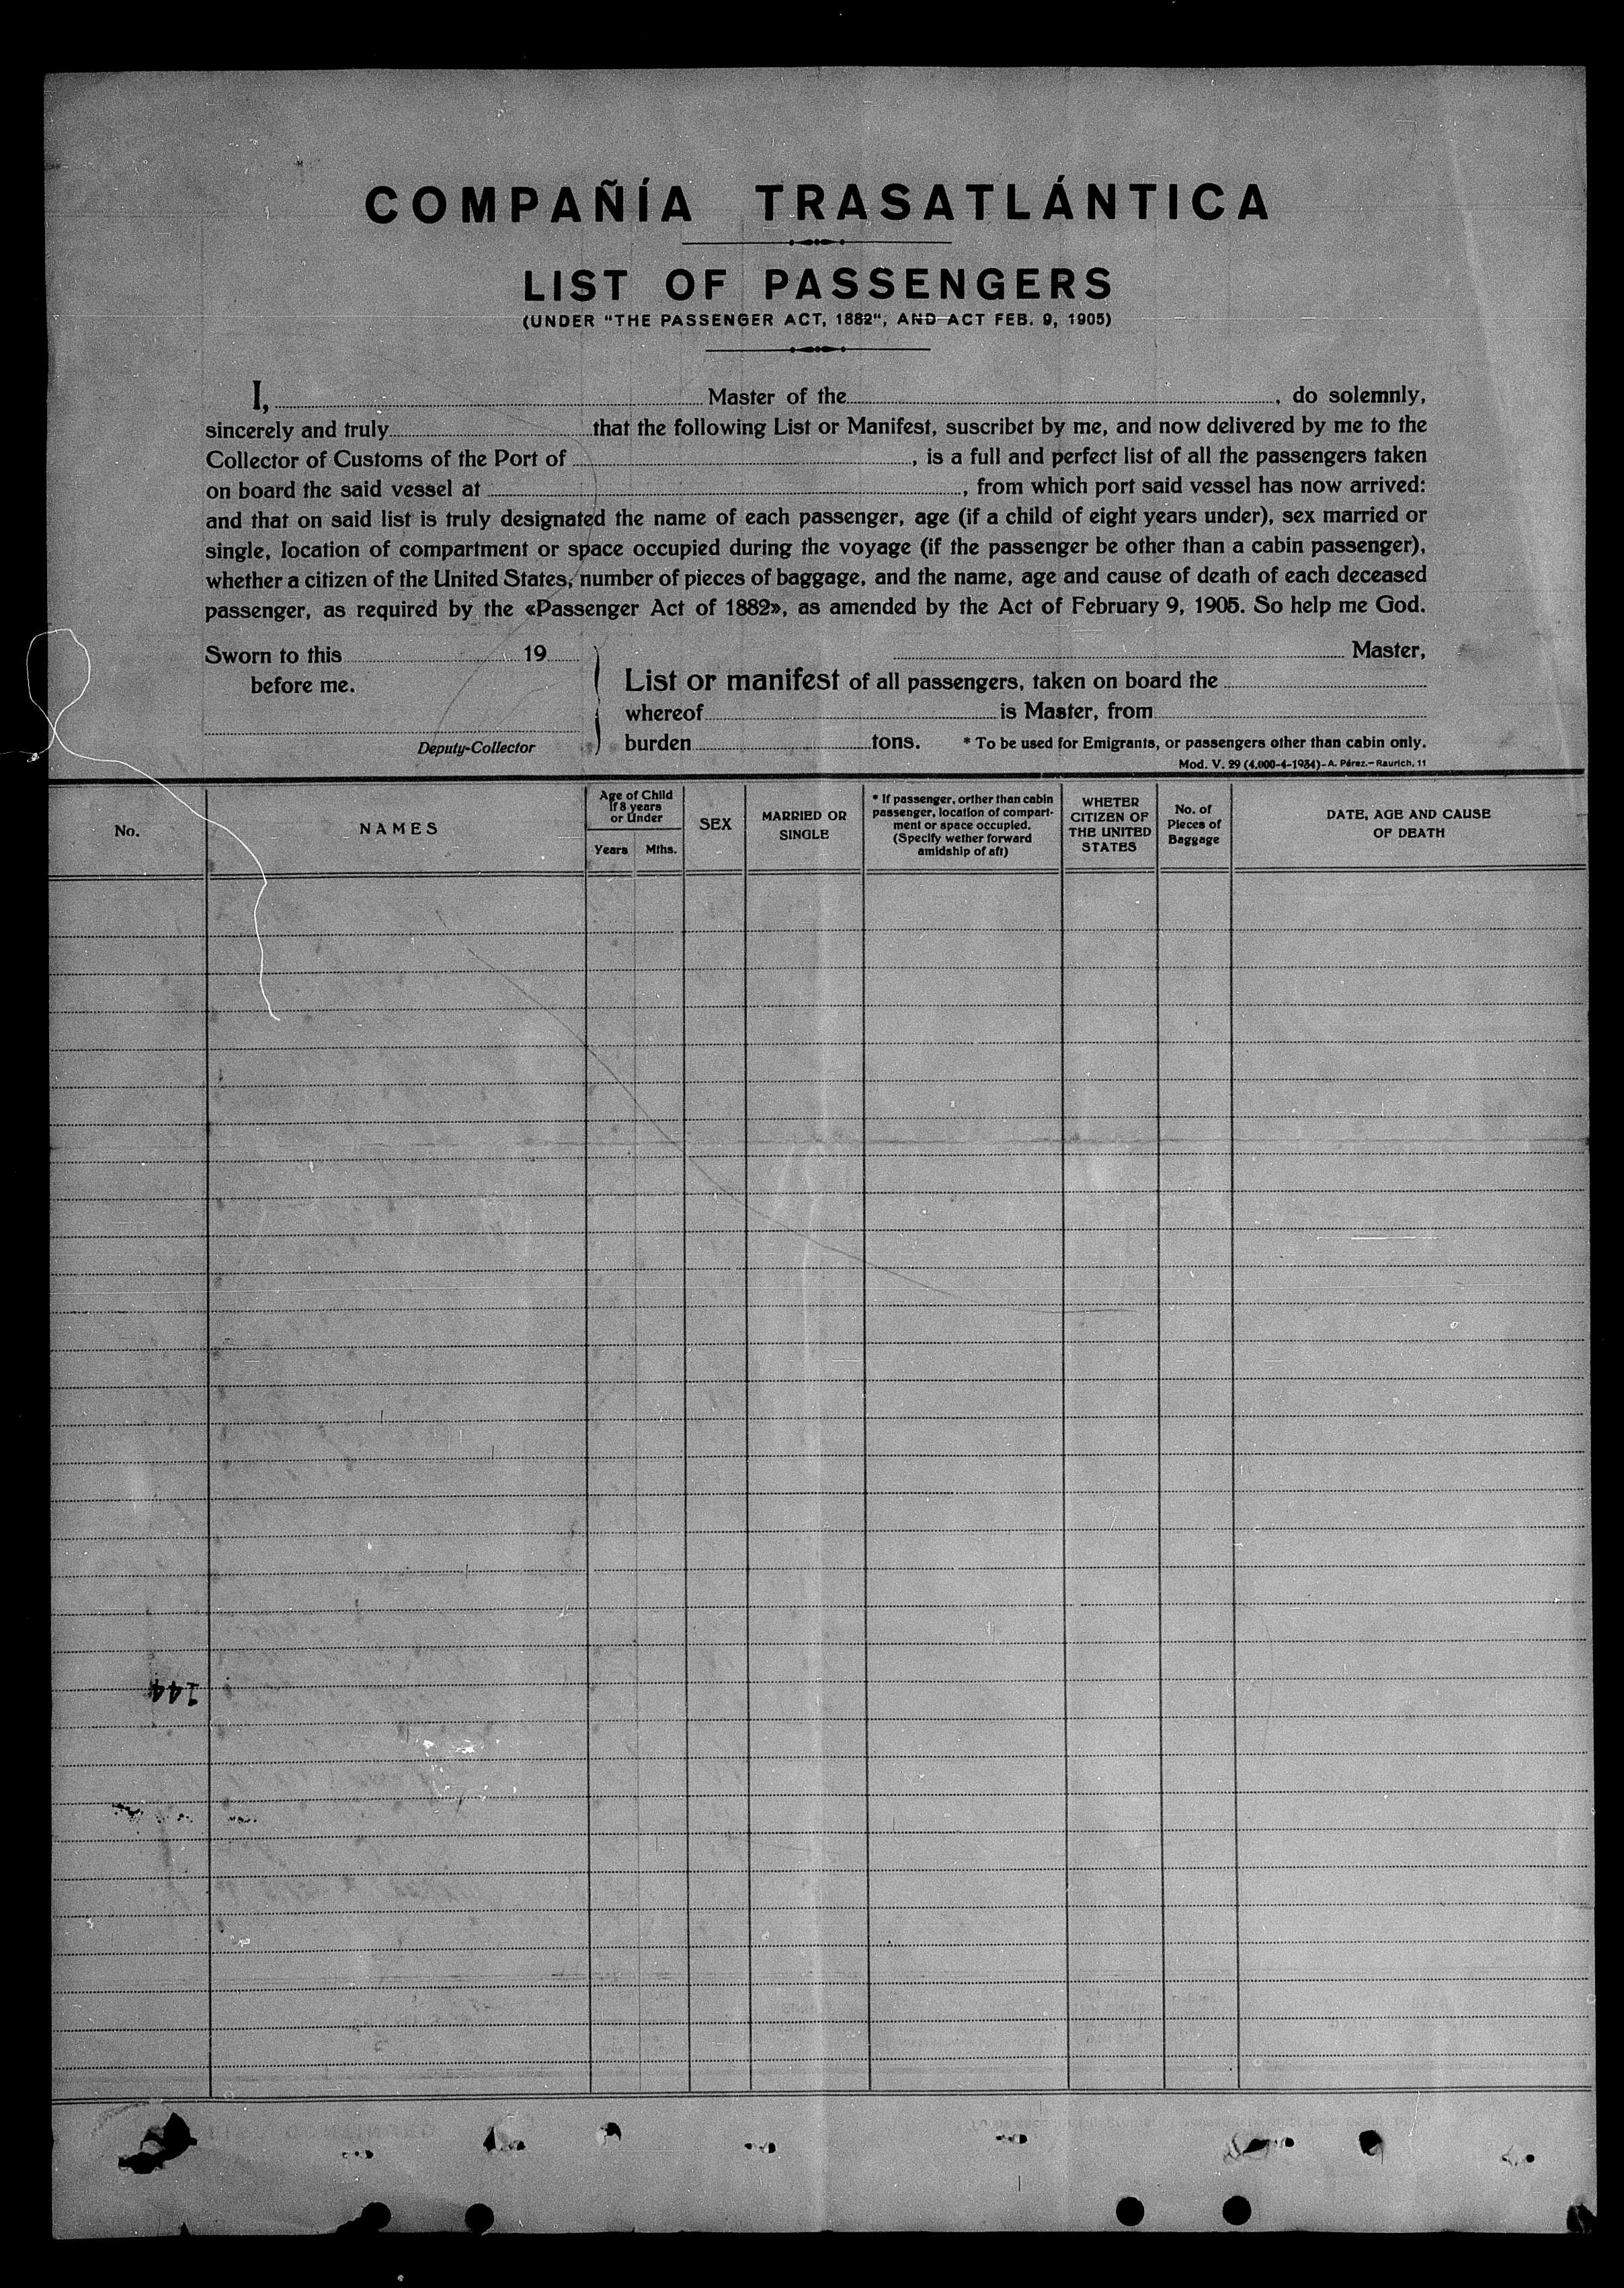 COMPAÑÍA TRASATLÁNTICA
LIST OF PASSENGERS
(UNDER "THE PASSENGER ACT, 1882", AND ACT FEB. 9, 1905)
I, Master of the , do solemnly,
sincerely and truly that the following List or Manifest, suscribet by me, and now delivered by me to the
Collector of Customs of the Port of , is a full and perfect list of all the passengers taken
on board the said vessel at , from which port said vessel has now arrived:
and that on said list is truly designated the name of each passenger, age (if a child of eight years under), sex married or
single, location of compartment or space occupied during the voyage (if the passenger be other than a cabin passenger),
whether a citizen of the United States, number of pieces of baggage, and the name, age and cause of death of each deceased
passenger, as required by the «Passenger Act of 1882», as amended by the Act of February 9, 1905. So help me God.
Sworn to this 19
before me.
Deputy-Collector
Master,
List or manifest of all passengers, taken on board the
whereof is Master, from
burden tons. * To be used for Emigrants, or passengers other than cabin only.
Mod. V. 29 (4.000-4-1934)-A. Pérez.-Raurich, 11
No.
NAMES
Age of Child
If 8 years
or Under
Years Mths.
SEX
MARRIED OR
SINGLE
* If passenger, orther than cabin
passenger, location of compart-
ment or space occupied.
(Specify wether forward
amidship of aft)
WHETER
CITIZEN OF
THE UNITED
STATES
No. of
Pieces of
Baggage
DATE, AGE AND CAUSE
OF DEATH
144